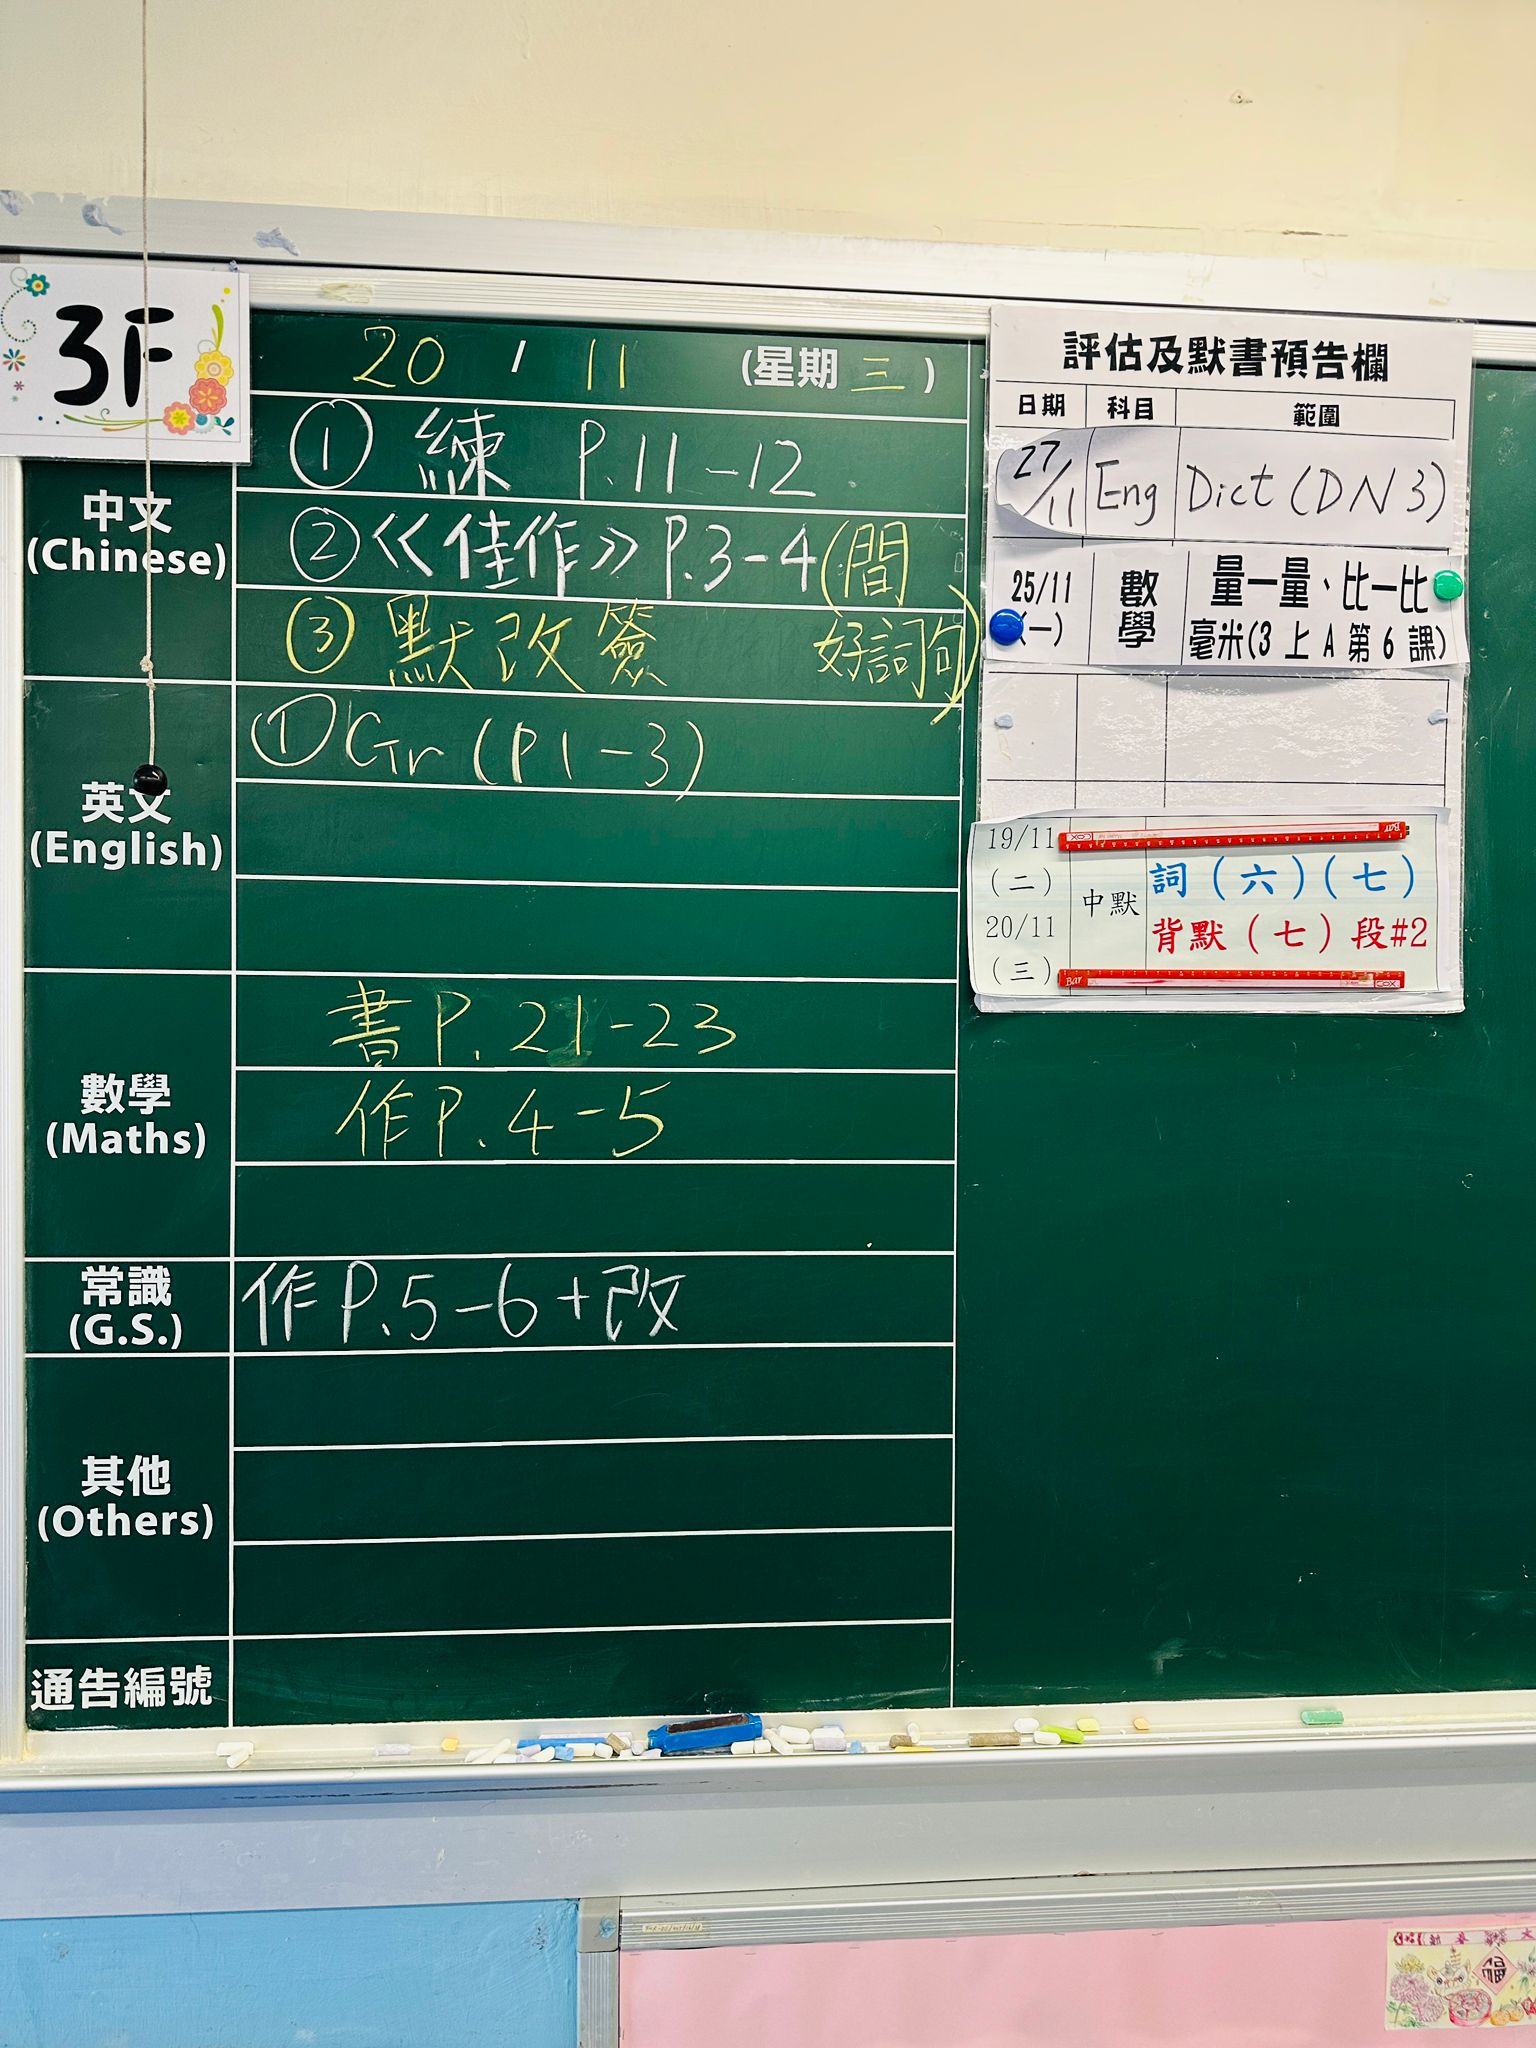 3F
20 / 11 (星期 三)
中文
(Chinese)
① 練 P.11-12
② <<佳作>> P.3-4(間
好詞句)
③ 默改簽
英文
(English)
① Gr (P1-3)
數學
(Maths)
書 P. 21-23
作 P. 4-5
常識
(G.S.)
作 P.5-6+改
其他
(Others)
通告編號
評估及默書預告欄
日期 科目 範圍
27/11 Eng Dict (DN3)
25/11 數學 量一量、比一比
(一) 毫米(3 上 A 第 6 課)
19/11
(二) 中默 詞(六)(七)
20/11 背默(七)段#2
(三)
COX Bar
Bar COX
福